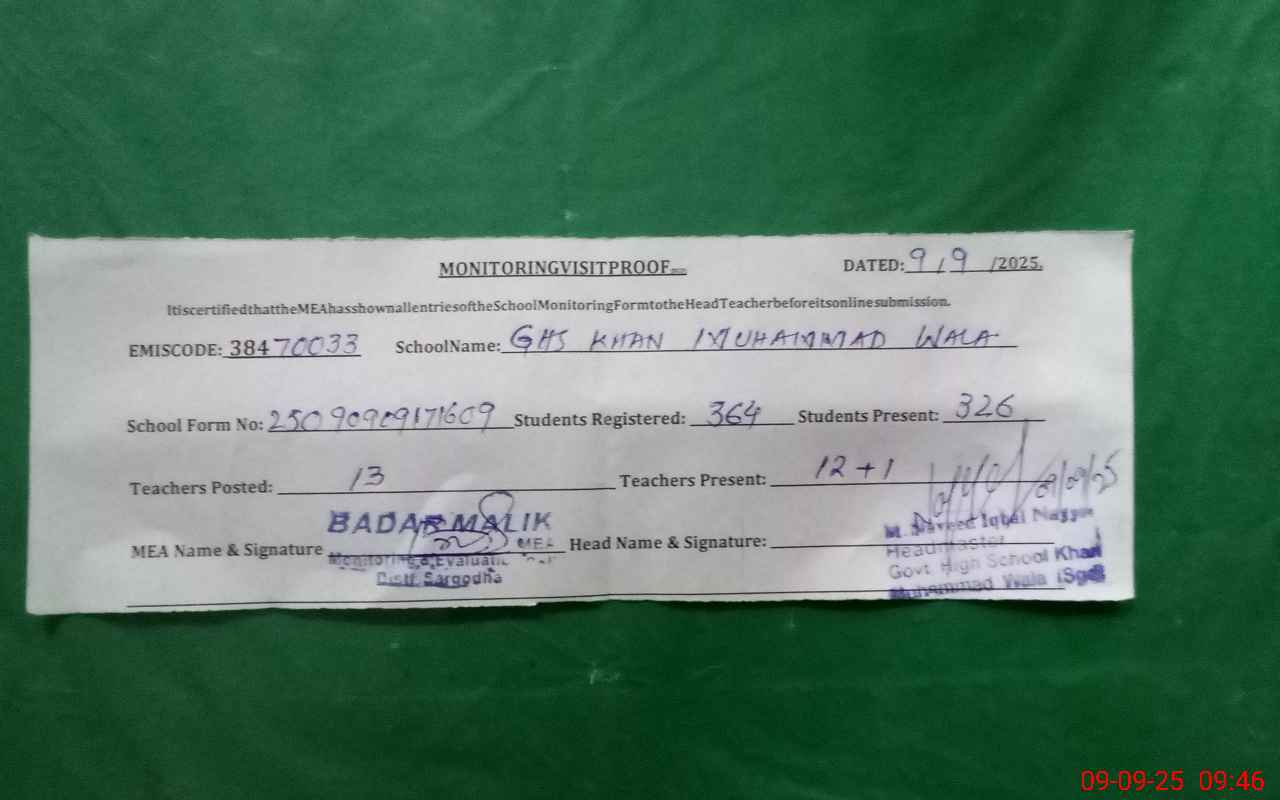 MONITORINGVISITPROOF
DATED: 9/9/2025.
ItiscertifiedthattheMEAhasshownallentriesoftheSchoolMonitoringFormtotheHeadTeacherbeforeitsonlinesubmission.
EMISCODE: 38470033 SchoolName: GHS KHAN MUHAMMAD WALA
School Form No: 25090909171609 Students Registered: 364 Students Present: 326
Teachers Posted: 13 Teachers Present: 12+1
09/09/25
BADAR MALIK
MEA
MEA Name & Signature Head Name & Signature:
Monitoring & Evaluation
Distt. Sargodha
M. Naveed Iqbal
Headmaster
Govt High School Khan
Muhammad Wala (Sgd)
09-09-25 09:46